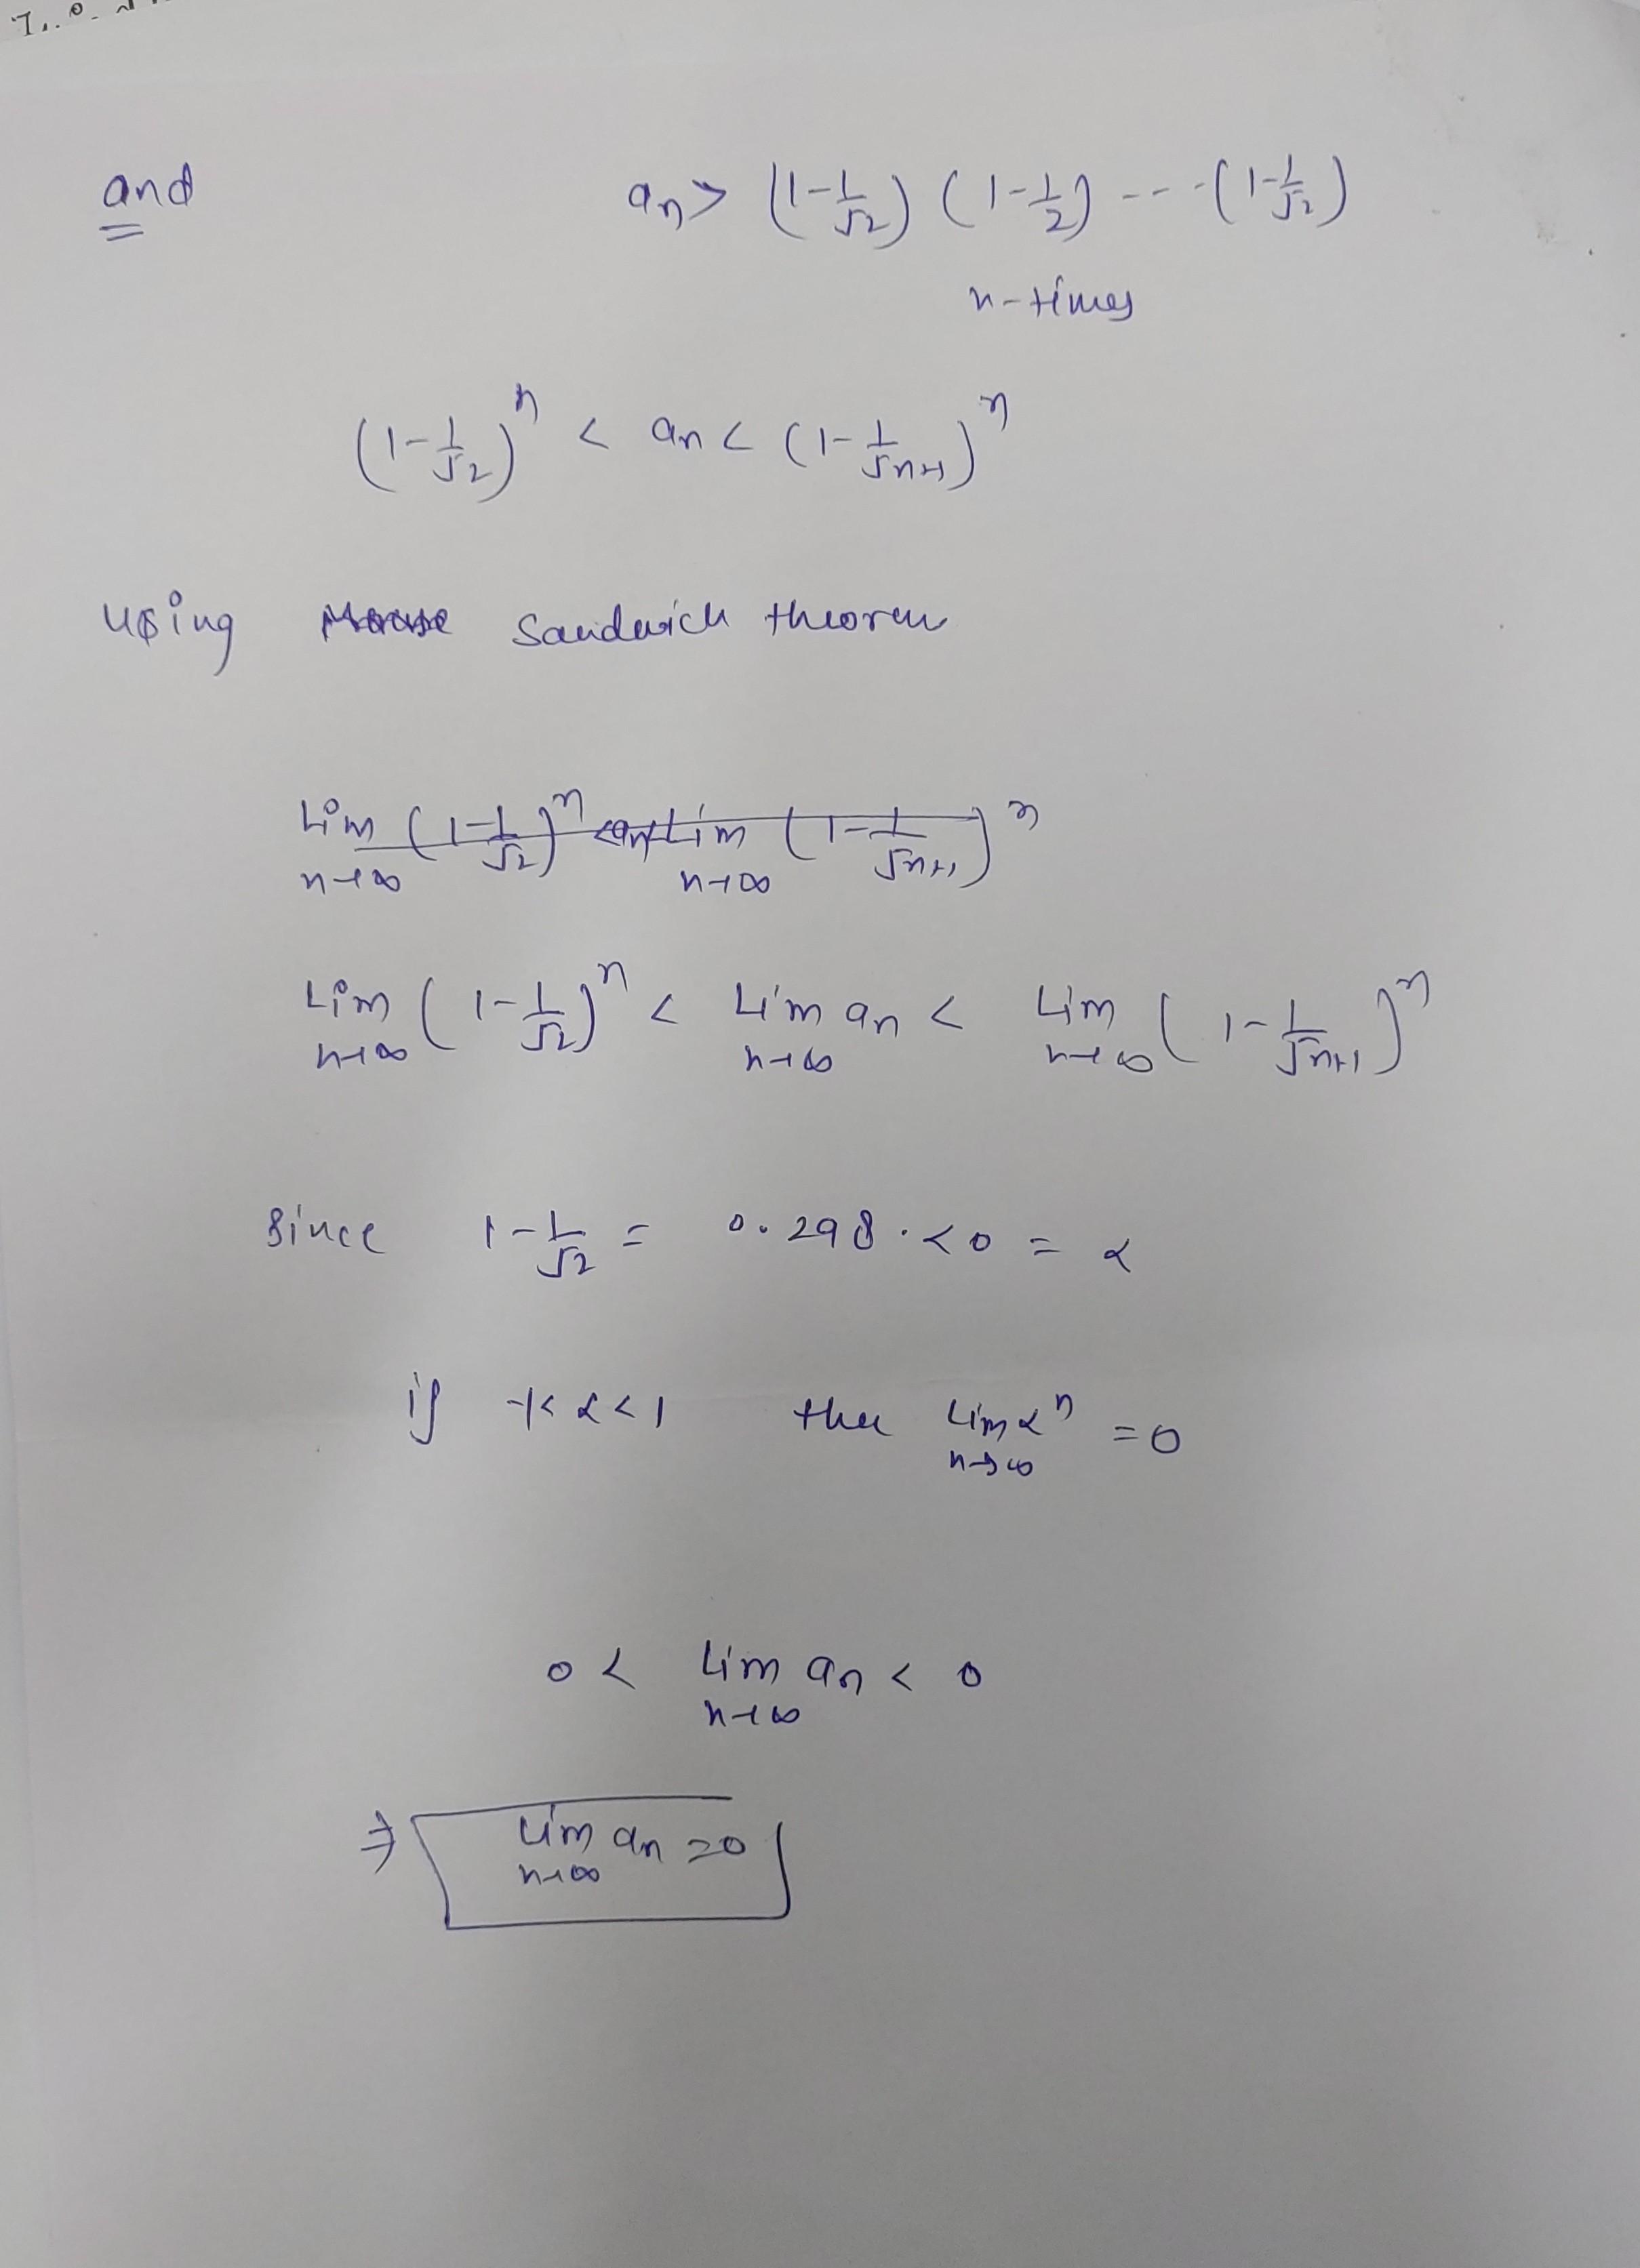 and a_n > (1-1/√2) (1-1/2) --- (1-1/√2)
n-times
(1-1/√2)^n < a_n < (1-1/√n+1)^n
using sandwich theorem
Lim n→∞ (1-1/√2)^n < a_n < Lim n→∞ (1-1/√n+1)^n
Lim n→∞ (1-1/√2)^n < Lim n→∞ a_n < Lim n→∞ (1-1/√n+1)^n
Since 1-1/√2 = 0.298 . < 0 = α
if -1< α < 1 the Lim n→∞ α^n = 0
0 < Lim n→∞ a_n < 0
⇒ Lim n→∞ a_n = 0